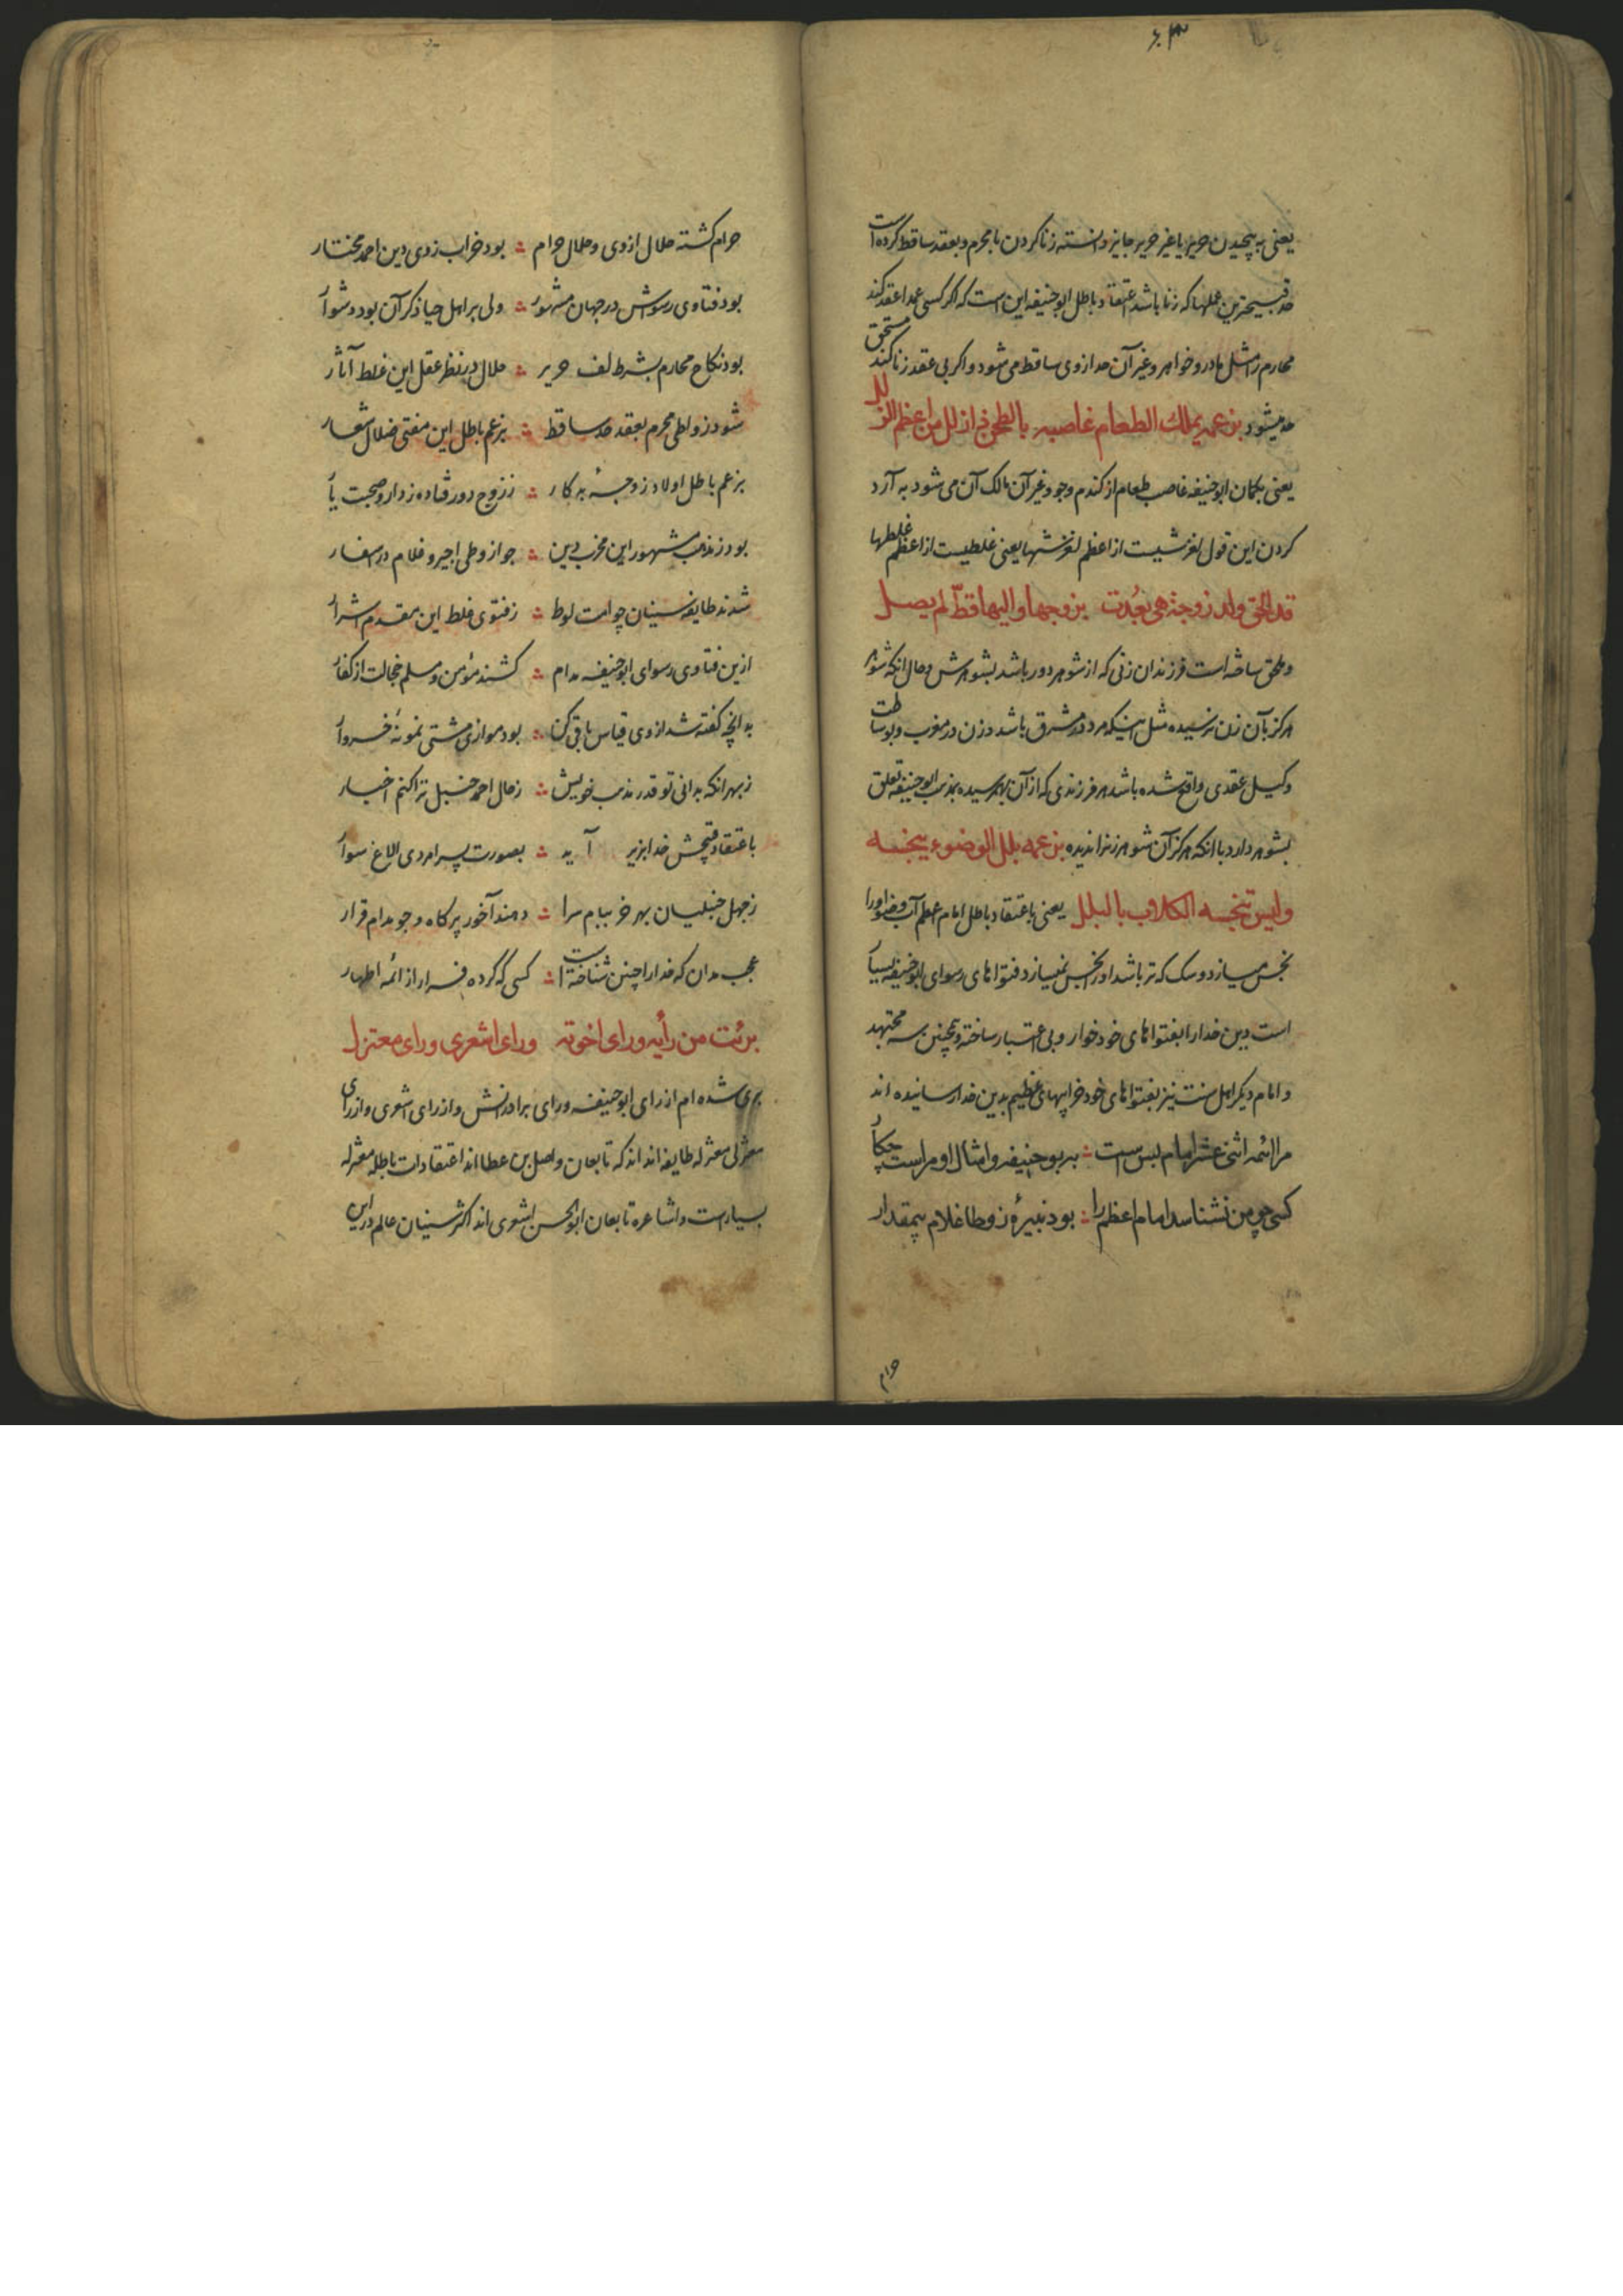 یعنی به پیچیدن حریر یا غیر حریر جایز دانسته زنا کردن با محرم و بعقد ساقط کرده است
حد قبیحترین عملها که زنا باشد اعتقاد باطل ابو حنیفه این است که اگر کسی عمدا عقد کند
محارم را مثل مادر و خواهر و غیر آن حد از وی ساقط می شود و اگر بی عقد زنا کند مستحق
حد میشود بزعمه یملک الطعام غاصبه بالطحن ذا زلل من اعظم الزلل
یعنی بکمان ابو حنیفه غاصب طعام از کندم و جو و غیر آن مالک آن می شود به آرد
کردن این قول لغزشیست از اعظم لغزشها یعنی غلطیست از اعظم غلطها
قد الحق ولد زوجة هی بعدت بزوجها والیها قط لم یصل
و ملحق ساخته است فرزندان زنی که از شوهر دور باشد بشوهرش و حال انکه شوهر
هرکز بآن زن نرسیده مثل اینکه مرد در مشرق باشد و زن در مغرب و بوساطت
وکیل عقدی واقع شده باشد هر فرزندی که از آن بهم رسیده بمذهب ابو حنیفه تعلق
بشوهر دارد با انکه هرکز آن شوهر زنرا ندیده بزعمه بلل الوضوء ینجسه
ولیس تنجسه الکلاب بالبلل یعنی باعتقاد باطل امام اعظم آب وضو او را
نجس میسازد و سک که تر باشد او را نجس نمیسازد فتواهای رسوای ابو حنیفه بسیار
است دین خدا را بفتواهای خود خوار و بی اعتبار ساخته و همچنین سه مجتهد
و امام دیکر اهل سنت نیز بفتواهای خود خرابیهای عظیم بدین خدا رسانیده اند
مرا ائمه اثنی عشر امام بس است ؞ به بو حنیفه و امثال او مراست چکار
کسی چو من نشناسد امام اعظم را ؞ بود نبیرهٔ زوطا غلام بیمقدار
حرام
حرام کشته حلال از وی و حلال حرام ؞ بود خراب ز وی دین احمد مختار
بود فتاوی رسواش در جهان مشهور ؞ ولی بر اهل حیا ذکر آن بود دشوار
بود نکاح محارم بشرط لف حریر ؞ حلال در نظر عقل این غلط آثار
شود ز واطی محرم بعقد حد ساقط ؞ بزعم باطل این مفتی ضلال شعار
بزعم باطل اولاد زوجهٔ بد کار ؞ ز زوج دور فتاده ز دار و صحبت یار
بود ز مذهب مشهور این مخرب دین ؞ جواز وطی اجیر و غلام در اسفار
شدند طایفه سنیان چو امت لوط ؞ ز فتوی غلط این مقدم اشرار
ازین فتاوی رسوای ابو حنیفه مدام ؞ کشند مؤمن و مسلم خجالت از کفار
به انچه کفته شد از وی قیاس باقی کن ؞ بود موازی مشتی نمونهٔ خروار
ز بهر انکه بدانی تو قدر مذهب خویش ؞ ز حال احمد حنبل ترا کنم اخبار
باعتقاد قبیحش خدا بزیر آید ؞ بصورت پسر امردی الاغ سوار
ز جهل حنبلیان بهر خر ببام سرا ؞ دهند آخور پر کاه و جو مدام قرار
عجب مدان که خدا را چنین شناخته است ؞ کسی که کرده فرار از ائمه اطهار
برئت من رأیه ورای اخوته ورای اشعری ورای معتزل
بری شده ام از رای ابو حنیفه و رای برادرانش و از رای اشعری و از رای
معتزلی معتزله طایفه اند که تابعان واصل بن عطا اند اعتقادات باطله معتزله
بسیار است و اشاعره تابعان ابو الحسن اشعری اند اکثر سنیان عالم در این